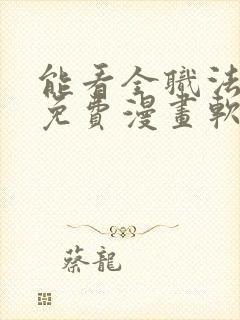 能看全職法
免費漫畫軟
蔡龍